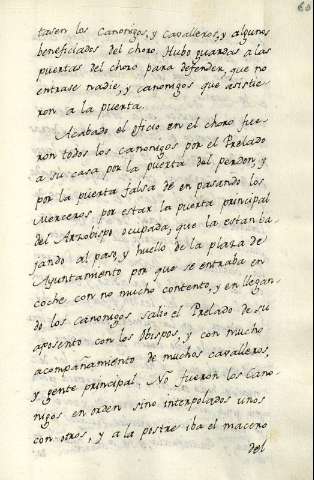 60
tasen los Canonigos, y Cavalleros, y algunos
beneficiados del choro. Hubo guardas a las
puertas del choro para defender, que no
entrase nadie, y canonigos que asistie-
ron a la puerta.
Acabado el oficio en el choro fue-
ron todos los canonigos por el Prelado
a su casa por la puerta del perdon, y
por la puerta falsa de en pasando los
Merceros por estar la puerta principal
del Arzobispo ocupada, que la estan ba-
jando al paso, y huello de la plaza de
Ayuntamiento por que se entraba en
coche con no mucho contento, y en llegan-
do los canonigos salio el Prelado de su
aposento con los Obispos, y con mucho
acompañamiento de muchos cavalleros,
y gente principal. No fueron los Cano-
nigos en orden sino interpolados unos
con otros, y a la postre iba el macero
del